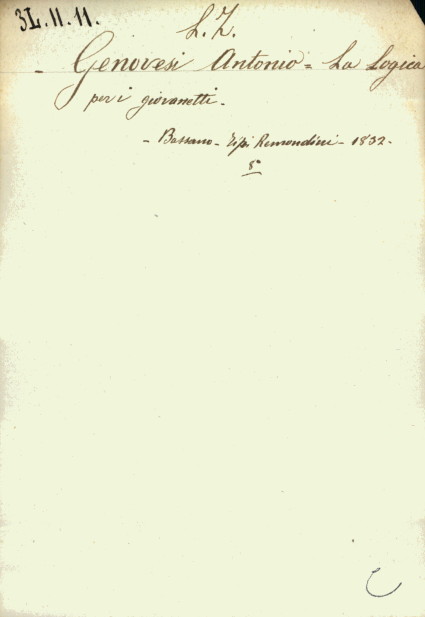 3L.11.11.
L.Z.
- Genovesi Antonio = La Logica
per i giovanetti.
- Bassano - Tipi Remondini - 1832.
8°